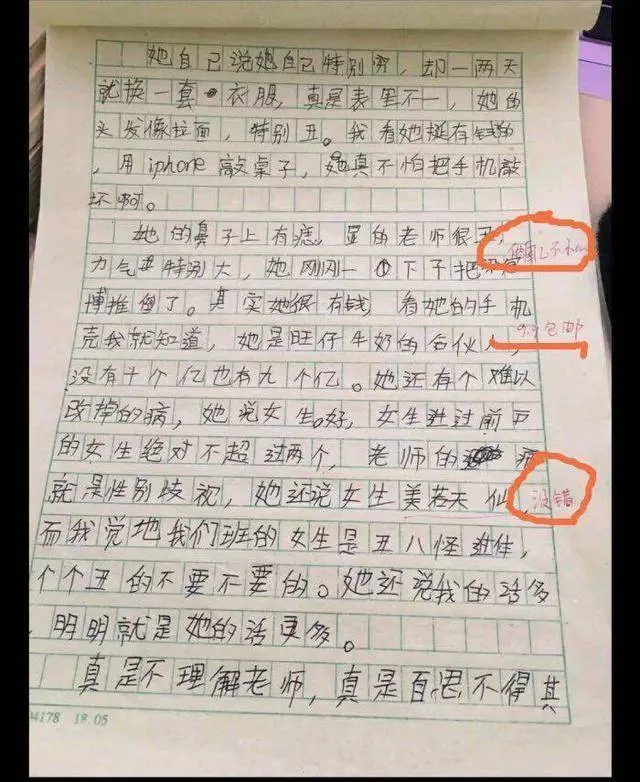 她自己说她自己特别穷，却一两天
就换一套衣服，真是表里不一，她的
头发像拉面，特别丑。我看她挺有钱的
，用iphone敲桌子，她真不怕把手机敲
坏啊。
她的鼻子上有痣，显的老师很丑，
力气特别大，她刚刚一下子把
博推倒了。其实她很有钱，看她的手机
9.9包邮
壳我就知道，她是旺仔牛奶的合伙人，
没有十个亿也有九个亿。她还有个难以
改掉的病，她说女生好，女生进过前门
的女生绝对不超过两个，老师的病
就是性别歧视，她还说女生美若天仙，
没错
而我说地我们班的女生是丑八怪进住，
个个丑的不要不要的。她还说我的话多
，明明就是她的话更多。
真是不理解老师，真是百思不得其
04178 18.05